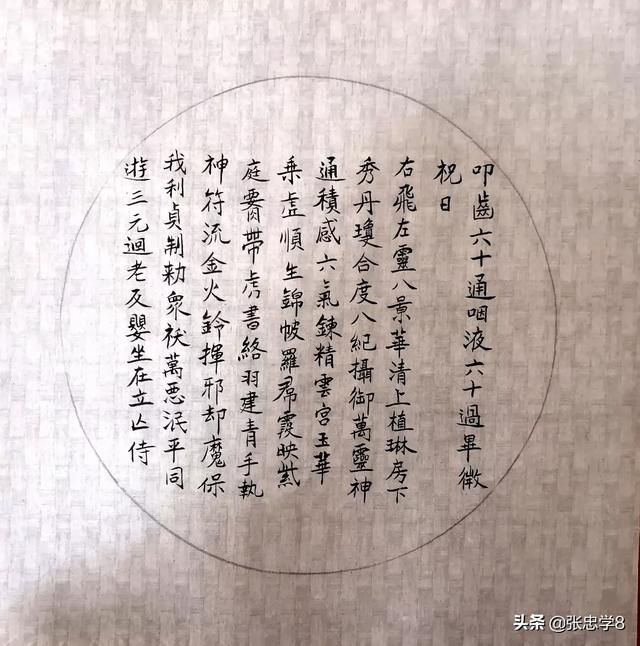 叩齒六十通咽液六十過畢微
祝曰
右飛左靈八景華清上植琳房下
秀丹瓊合度八紀攝御萬靈神
通積感六氣鍊精雲宮玉華
乘虛順生錦帔羅帬霞映紫
庭帶虎書絡羽建青手執
神符流金火鈴揮邪却魔保
我利貞制勅衆祅萬惡泯平同
遊三元迴老反嬰坐在立亾侍
头条 @张忠学8